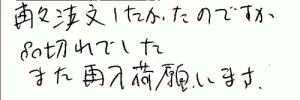 再々注文したかったのですが
品切れでした
また再入荷願います.